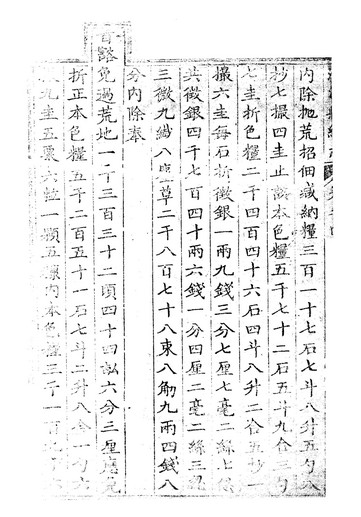 內除抛荒招佃減納糧三百一十七石七斗八升五勺八
抄七撮四圭止該本色糧五千七十二石五斗九合三勺
七圭折色糧二千四百四十六石四斗八升二合五抄一
撮六圭每石折徵銀一兩九錢三分七厘七毫二絲上
共徵銀四千七百四十兩六錢一分四厘二毫二絲三忽
三微九纖八塵草二千八百七十八束八觔九兩四錢八
分內除奉
旨豁免過荒地一千三百三十二頃四十四畝六分三厘
折正本色糧五千二百五十一石七斗二升八合一勺六
九圭五粟六粒一顆五 內本色糧三千一百